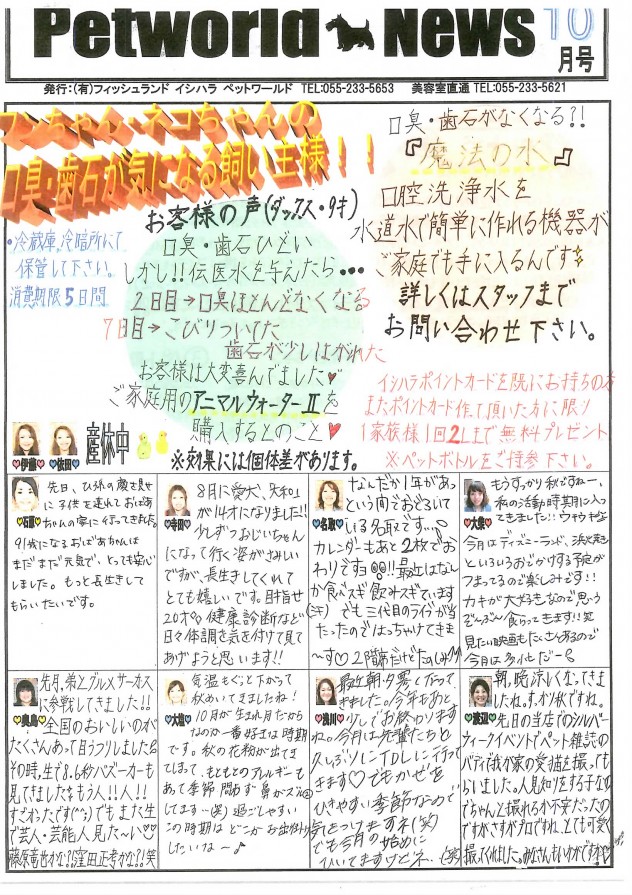 Petworld News 10月号
発行：(有)フィッシュランド イシハラ ペットワールド TEL:055-233-5653 美容室直通 TEL:055-233-5621
ワンちゃん・ネコちゃんの
口臭・歯石が気になる飼い主様！！
お客様の声(ダックス・9才)
口臭・歯石ひどい
しかし!!伝医水を与えたら・・・
2日目→口臭ほとんどなくなる
7日目→こびりついてた
歯石が少しはがれた
お客様は大変喜んでました♥
ご家庭用のアニマルウォーターⅡを
購入するとのこと♥
※効果には個体差があります。
・冷蔵庫、冷暗所にて
保管して下さい。
消費期限5日間
口臭・歯石がなくなる?!
『魔法の水』
口腔洗浄水を
水道水で簡単に作れる機器が
ご家庭でも手に入るんです
詳しくはスタッフまで
お問い合わせ下さい。
イシハラポイントカードを既にお持ちの方
またポイントカード作って頂いた方に限り
1家族様1回2Lまで無料プレゼント
※ペットボトルをご持参下さい。
♥伊藤♥
♥依田♥
産休中
♥石原♥
先日、ひ孫の顔を見せ
に子供を連れておばあ
ちゃんの家に行ってきました。
91歳になるおばあちゃんは
まだまだ元気で、とっても安心
しました。もっと長生きして
もらいたいです。
♥寺田♥
8月に愛犬、大和」
が14才になりました!!
少しずつおじいちゃん
になって行く姿がさみしい
ですが、長生きしてくれて
とても嬉しいです。目指せ
20才!健康診断など
日々体調を気を付けて見て
あげようと思います!!
♥名取♥
なんだか1年があっ
という間でおどろいて
いる名取です…
カレンダーもあと2枚でお
わりですヨ!!最近はなん
か食べスギ飲みスギています
でも三代目のライブが当
たったのではっちゃけてきま
～す♡2階席だけどたのしみ♪
♥大柴♥
もうすっかり秋ですねー。
私の活動時期に入っ
てきました!!
今月はディズニーランド、浜松
といろいろおでかけする予定が
つまってるので楽しみです!!
カキが大好きなので思う
ぞんぶん食らってきます!!笑
見たい映画もたくさんあるので
今月は多忙だー
♥奥島♥
先月、弟とグルメサーカス
に参戦してきました!!
全国のおいしいのが
たくさんあって目うつりしました
その時、生で8.6秒バズーカーも
見てきましたもう人!!人!!
すごオったです(^^;)でもまた生
で芸人・芸能人見た～い♡♡
藤原竜也かな?窪田正孝かな?!笑
♥大森♥
気温もぐっと下がって
秋めいてきましたね!
10月が生まれ月だから
なのか一番好きな時期
です。秋の花粉が出てき
てしまって、もともとのアレルギーも
あって季節問わず鼻がズ
してます…(笑)過ごしやすい
この時期はどこかお出掛け
したいなー♪
♥浅川♥
最近朝・夕寒くなって
きました。今年もあと
少しでお終わります
ね。今月は先輩たちと
久しぶりにTDLに行って
きます♡でもかぜを
ひきやすい季節なので
気をつけますネ(笑)
でも今月の始めに
ひいてますけどネ…(笑)
♥渡辺♥
朝、晩涼しくなってきま
したね。すっかり秋ですね。
先日の当店でのシルバー
ウィークイベントでペット雑誌の
パティで我が家の愛猫を撮っても
らいました。人見知りをする子なの
でちゃんと撮れるか不安だったの
ですがさすがプロですね。とても可愛く
撮ってくれました。みなさんもいかがですか♡